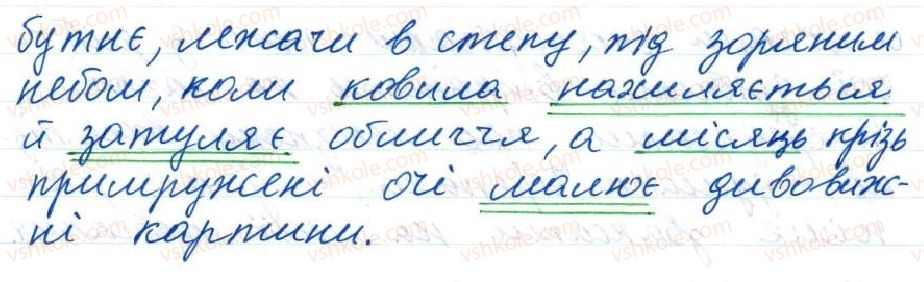 бутнє, лежачи в степу, під зоряним
небом, коли ковила нахиляється
й затуляє обличчя, а місяць крізь
примружені очі малює дивовиж-
ні картини.